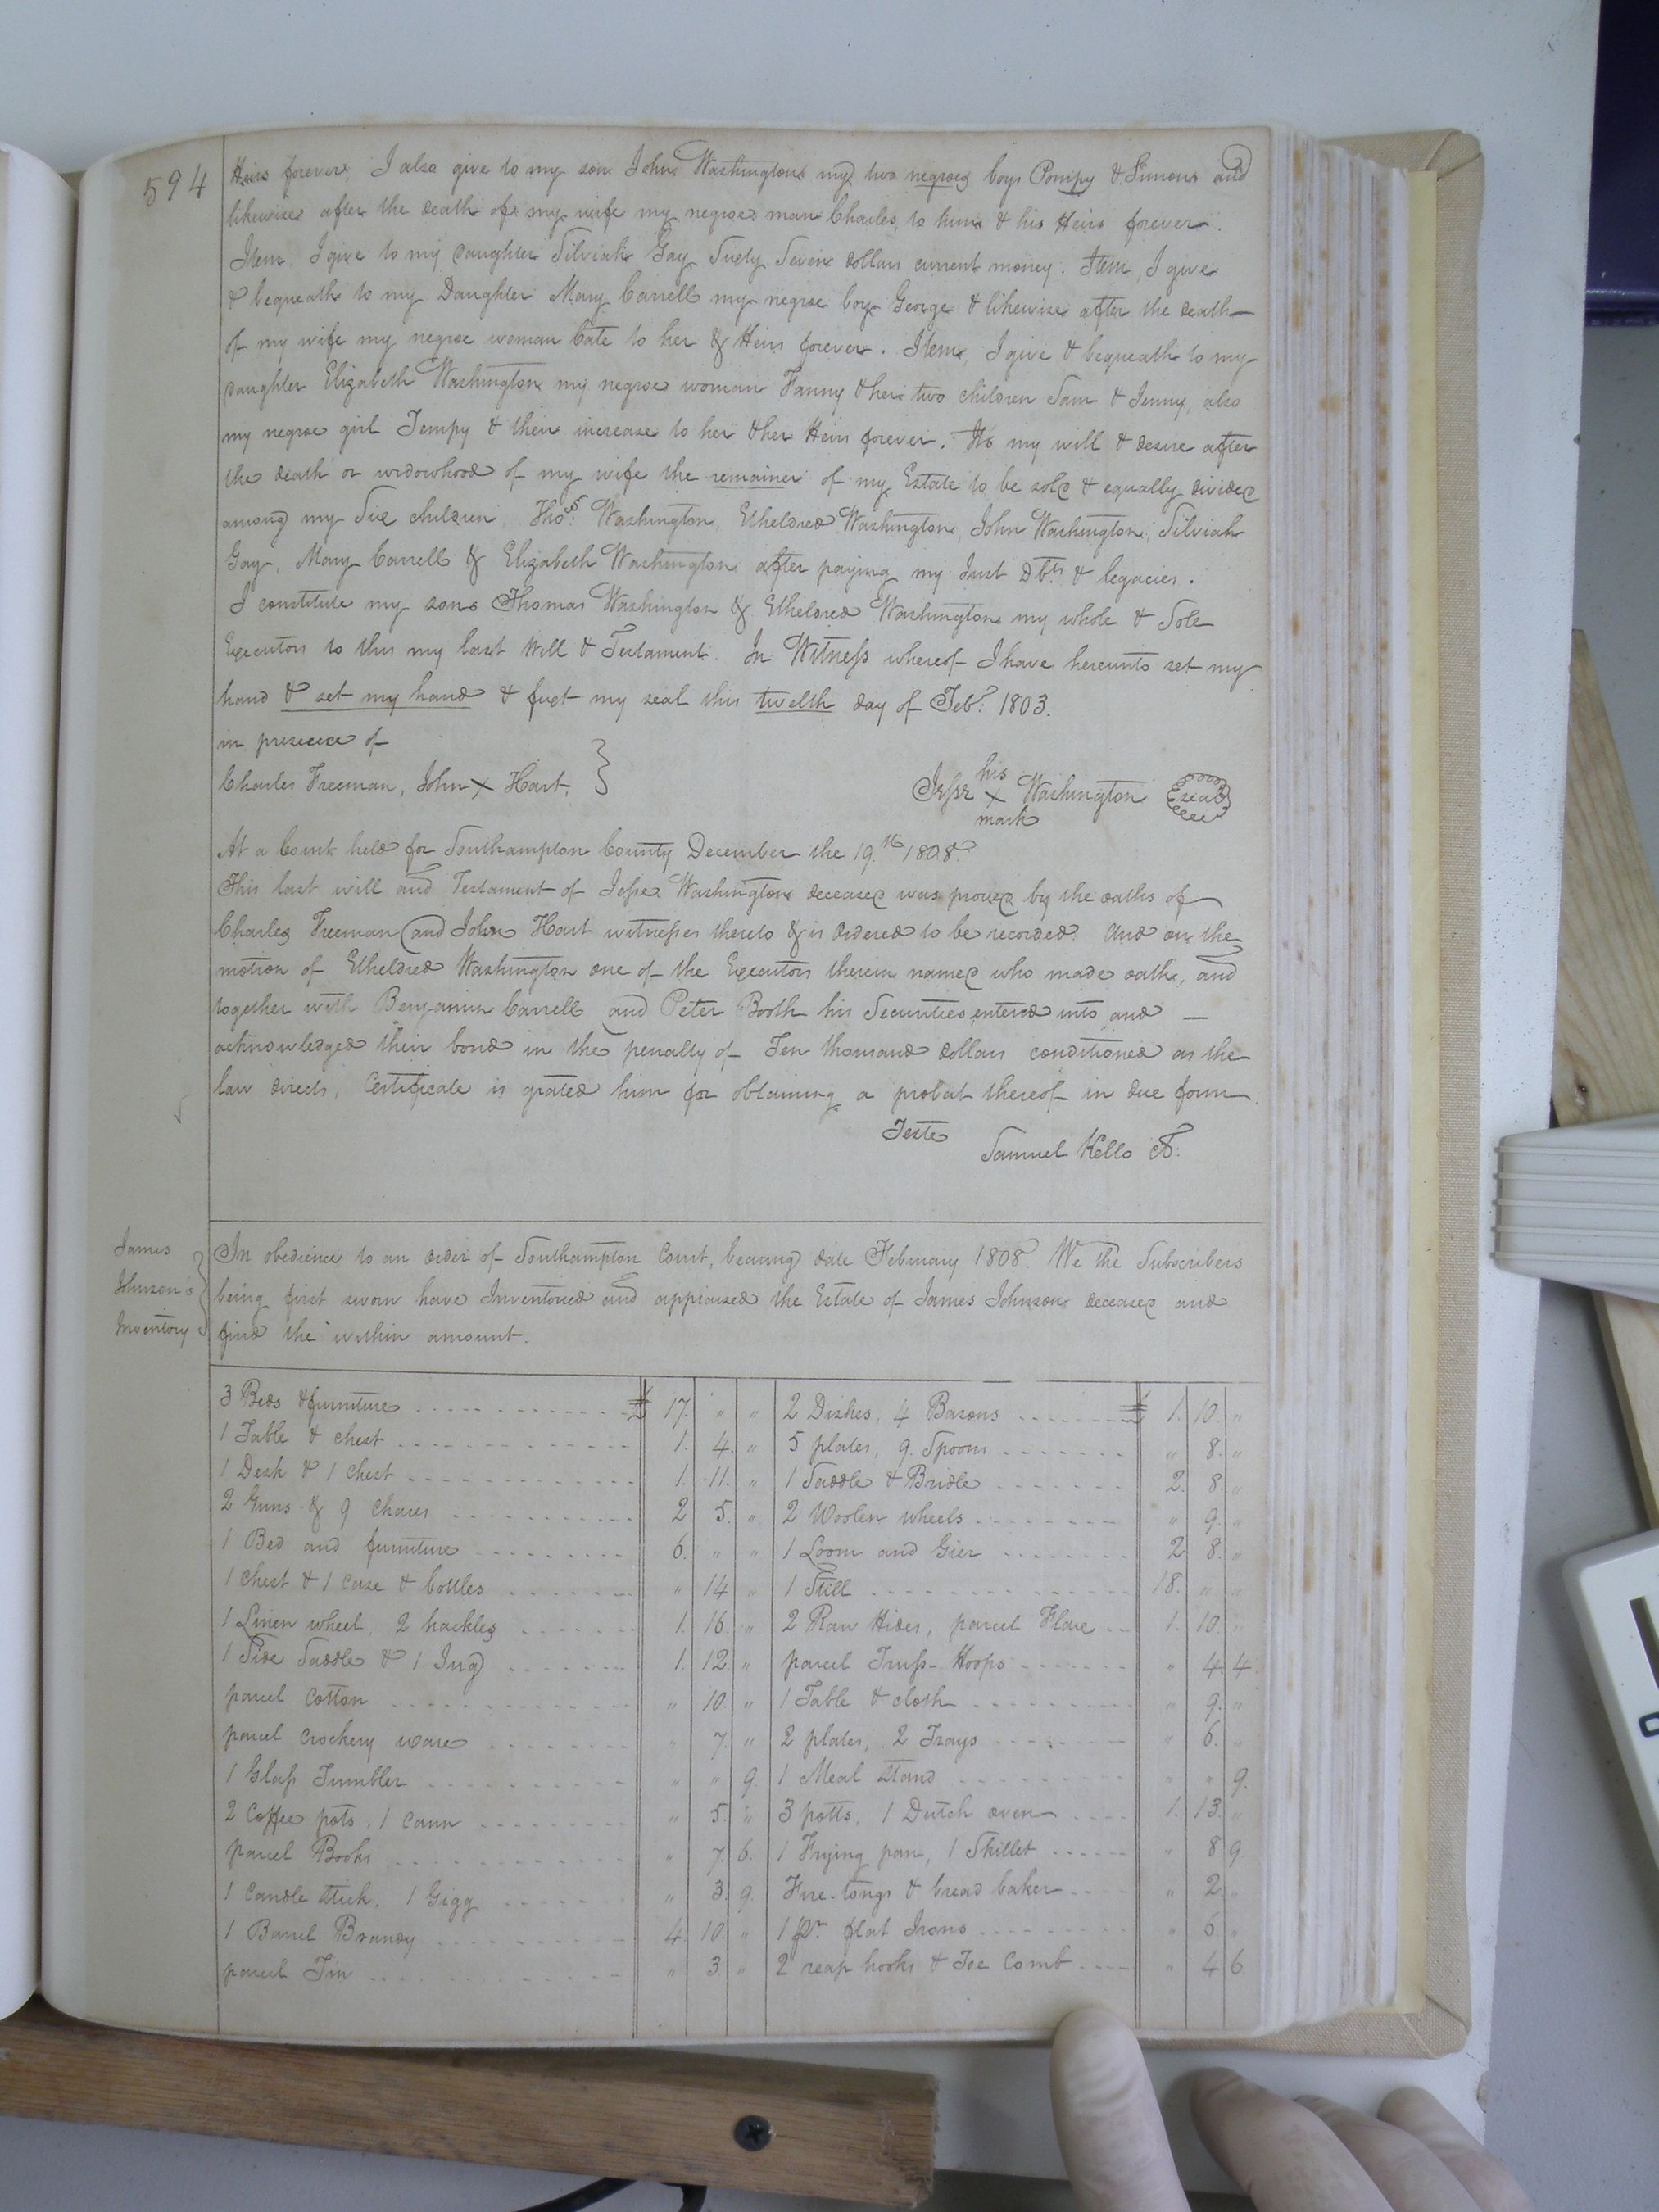 594
Heirs forever, I also give to my son John Washington my two negroes boys Pompy & Simon and
likewise after the death of my wife my negroe man Charles, to him & his Heirs forever.
Item. I give to my daughter Silviah Gay Sixty Seven dollars current money. Item, I give
& bequeath to my Daughter Mary Carrell my negroe boy George & likewise after the death
of my wife my negroe woman Cate to her & Heirs forever. Item, I give & bequeath to my
daughter Elizabeth Washington my negroe woman Fanny & her two children Sam & Jenny, also
my negroe girl Tempy & their increase to her & her Heirs forever. It's my will & desire after
the death or widowhood of my wife the remainer of my Estate to be sold & equally divided
among my Six children Thos. Washington, Etheldred Washington, John Washington, Silviah
Gay, Mary Carrell & Elizabeth Washington after paying my Just Dbts & legacies.
I constitute my sons Thomas Washington & Etheldred Washington my whole & Sole
Executors to this my last Will & Testament. In Witness whereof I have hereunto set my
hand & set my hand & fixt my seal this twelth day of Feby. 1803.
in presence of
Charles Freeman, John X Hart.
his
Jesse X Washington seal
mark
At a Court held for Southampton County December the 19th 1808.
This last will and Testament of Jesse Washington deceased was proved by the oaths of
Charles Freeman and John Hart witnesses thereto & is Ordered to be recorded. And on the
motion of Etheldred Washington one of the Executors therein named who made oath, and
together with Benjamin Carrell and Peter Booth his Securities entered into and
acknowledged their bond in the penalty of Ten thousand dollars conditioned as the
law directs, Certificate is grated him for obtaining a probat thereof in due form.
Teste
Samuel Kello Ct.
James
Johnson's
Inventory
In obedience to an order of Southampton Court, bearing date February 1808. We the Subscribers
being first sworn have Inventoried and appraised the Estate of James Johnson deceased and
find the within amount.
3 Beds & furniture £ 17. " " 2 Dishes, 4 Basons £ 1. 10. "
1 Table & chest 1. 4. " 5 plates, 9 Spoons " 8. "
1 Desk & 1 chest 1. 11. " 1 Saddle & Bridle 2. 8. "
2 Guns & 9 chares 2 5. " 2 Woolen wheels " 9. "
1 Bed and furniture 6. " " 1 Loom and Gier 2 8. "
1 chest & 1 case & bottles " 14 " 1 Still 18. " "
1 Linen wheel, 2 hackles 1. 16. " 2 Raw Hides, parcel Flax 1. 10. "
1 Side Saddle & 1 Jug 1. 12. " parcel Truss-Hoops " 4. 4
parcel Cotton " 10. " 1 Table & cloth " 9. "
parcel crockery ware " 7. " 2 plates, 2 Trays " 6. "
1 Glass Tumbler " " 9. 1 Meal Stand " " 9.
2 Coffee pots, 1 cann " 5. " 3 potts, 1 Dutch oven 1. 13. "
parcel Books " 7. 6. 1 Frying pan, 1 Skillet " 8 9.
1 Candle Stick. 1 Gigg " 3. 9. Fire-tongs & bread baker " 2. "
1 Barrel Brandy 4. 10. " 1 pr. flat Irons " 6 "
parcel Tin " 3. " 2 reap hooks & Toe Comb " 4 6.